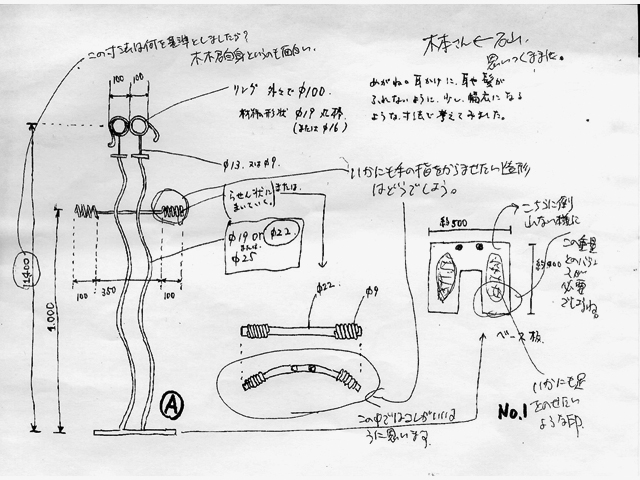 この寸法は何を基準としましたか?
木本君自身というのも面白い。
木本さん←石山
思いつくままに。
100
100
リング 外々でφ100
材料の形状 φ19 丸棒
(またはφ16)
めがね。耳かけに、耳や髪が
ふれないように、少し、幅広になる
ような寸法で考えてみました。
φ13. 又はφ9.
いかにも手の指をからませたい造形
はどうでしょう。
らせん状に
まいていく。
または
φ19 or φ22
または
φ25
100
350
100
1.000
φ22
φ9
約500
こちらに倒
れない様に
この重量
とのバラン
スが
必要
でしょうね。
ベース板
いかにも足
をのせたい
ような印
No.1
A
この中ではコレがいいよ
うに思います